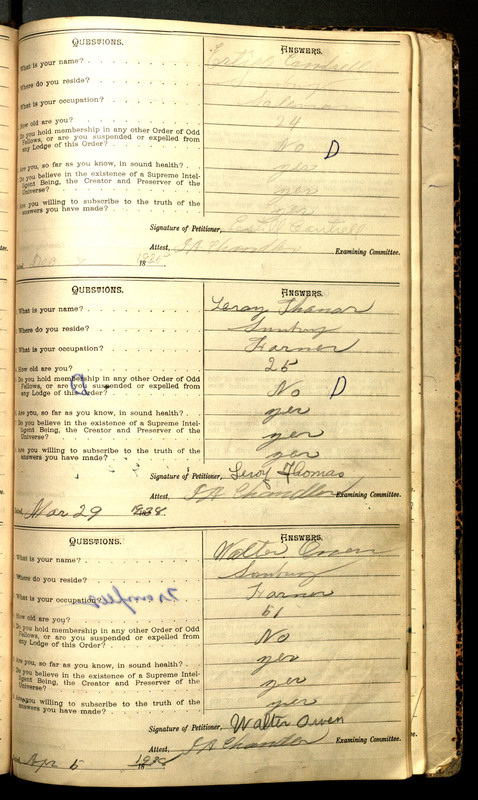 QUESTIONS. ANSWERS.
What is your name?
Where do you reside?
What is your occupation? Salesman
How old are you? 24
Do you hold membership in any other Order of Odd
Fellows, or are you suspended or expelled from
any Lodge of this Order? No D
Are you, so far as you know, in sound health? yes
Do you believe in the existence of a Supreme Intel-
ligent Being, the Creator and Preserver of the
Universe? yes
Are you willing to subscribe to the truth of the
answers you have made? yes
Signature of Petitioner, Cantrell
Attest, J A Chandler Examining Committee.
Dec 18
QUESTIONS. ANSWERS.
What is your name? Leroy Thomas
Where do you reside? Sunbury
What is your occupation? Farmer
How old are you? 25
Do you hold membership in any other Order of Odd
Fellows, or are you suspended or expelled from
any Lodge of this Order? No D
Are you, so far as you know, in sound health? yes
Do you believe in the existence of a Supreme Intel-
ligent Being, the Creator and Preserver of the
Universe? yes
Are you willing to subscribe to the truth of the
answers you have made? yes
Signature of Petitioner, Leroy Thomas
Attest, J A Chandler Examining Committee.
Mar 29
QUESTIONS. ANSWERS.
What is your name? Walter Owen
Where do you reside? Sunbury
What is your occupation? Farmer
How old are you? 51
Do you hold membership in any other Order of Odd
Fellows, or are you suspended or expelled from
any Lodge of this Order? No
Are you, so far as you know, in sound health? yes
Do you believe in the existence of a Supreme Intel-
ligent Being, the Creator and Preserver of the
Universe? yes
Are you willing to subscribe to the truth of the
answers you have made? yes
Signature of Petitioner, Walter Owen
Attest, J A Chandler Examining Committee.
Apr 5 18